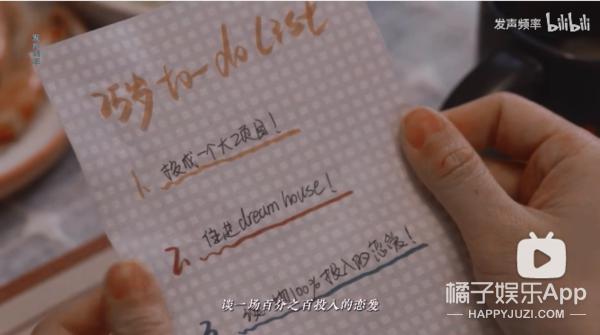 发声频率 bilibili
岁 to-do list
1. 一个大项目！
2. 住进dream house！
3. 谈一场100%投入的恋爱！
谈一场百分之百投入的恋爱
橘子娱乐App
HAPPYJUZI.COM